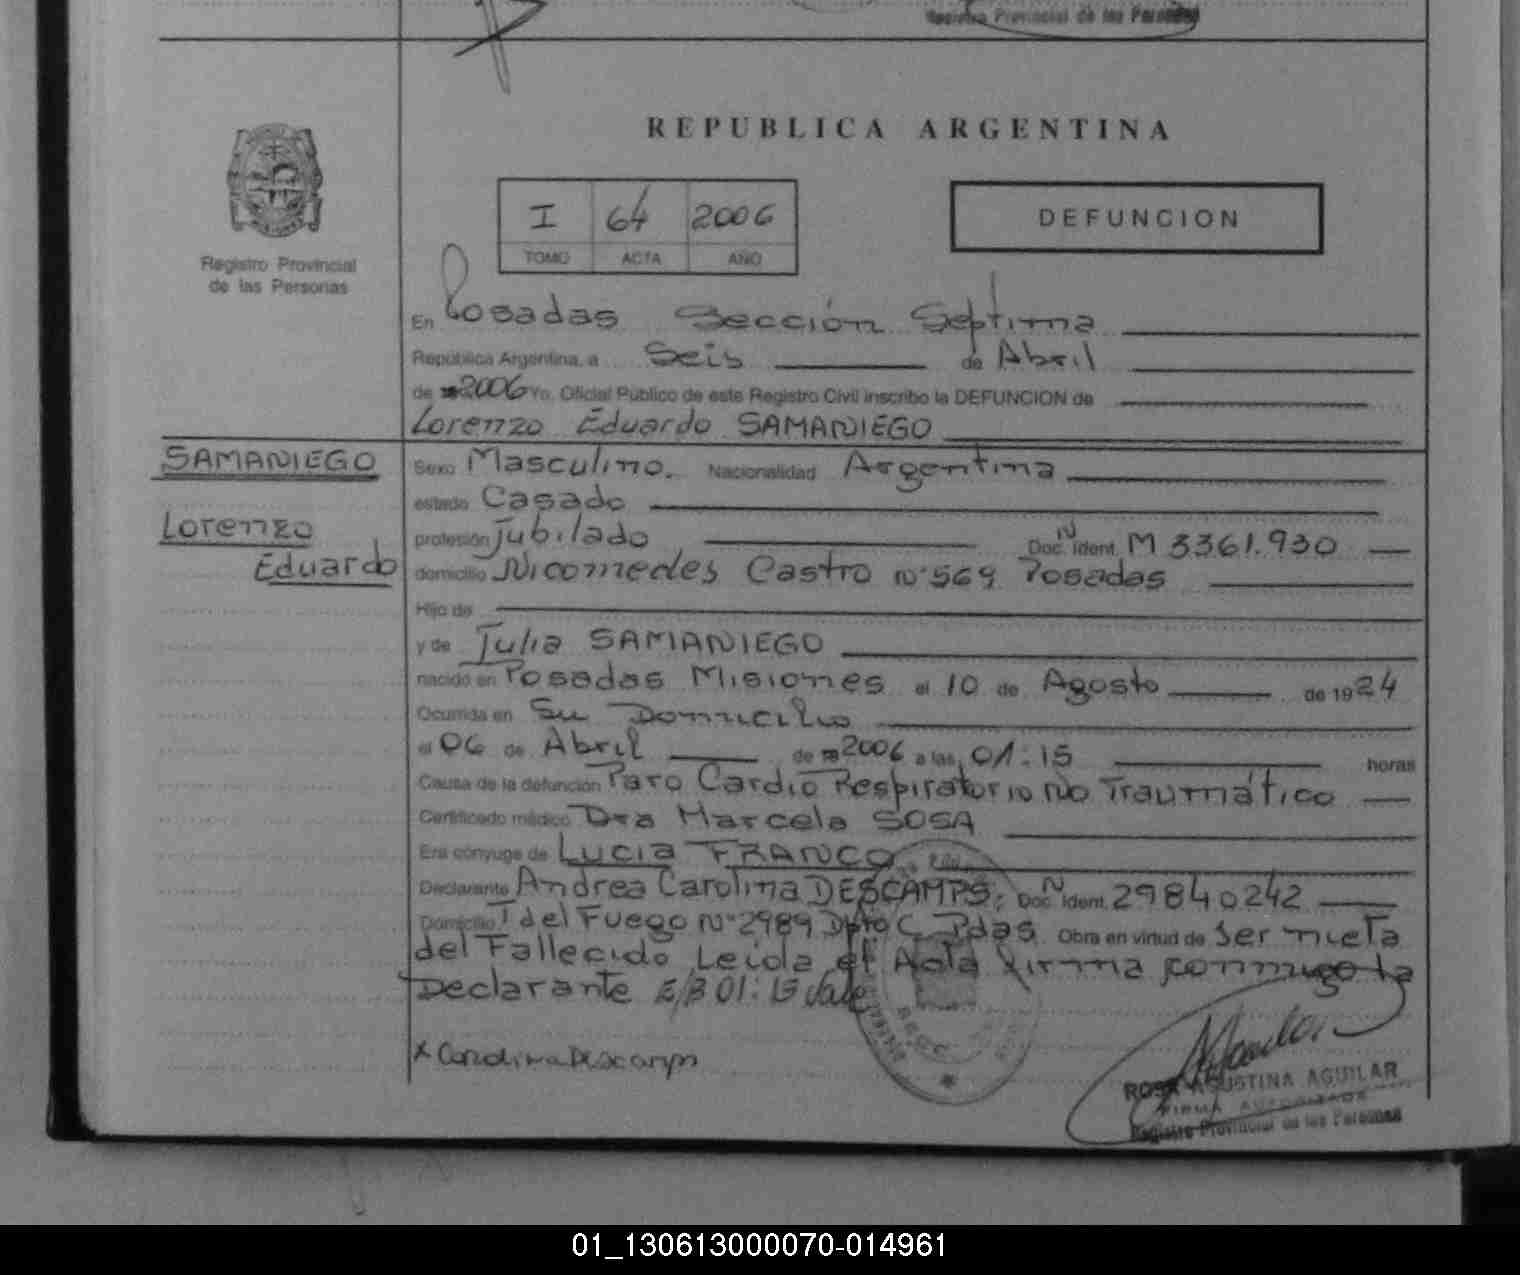 Registro Provincial de las Personas
REPUBLICA ARGENTINA
I 64 2006
TOMO ACTA AÑO
DEFUNCION
Registro Provincial
de las Personas
En Posadas Sección Septima
República Argentina, a Seis de Abril
de 2006 Yo, Oficial Público de este Registro Civil inscribo la DEFUNCION de
Lorenzo Eduardo SAMANIEGO
SAMANIEGO
Lorenzo
Eduardo
Sexo Masculino. Nacionalidad Argentina
estado Casado
profesión Jubilado Doc. N Ident. M 3361.930
domicilio Nicomedes Castro N° 569 Posadas
Hijo de
y de Julia SAMANIEGO
nacido en Posadas Misiones el 10 de Agosto de 1924
Ocurrida en Su Domicilio
el 06 de Abril de 2006 a las 01:15 horas
Causa de la defunción Paro Cardio Respiratorio No Traumático
Certificado médico Dra Marcela SOSA
Era cónyuge de Lucia FRANCO
Declarante Andrea Carolina DESCAMPS; Doc. N Ident. 29840242
Domicilio T del Fuego N° 2989 Dpto C Pdas. Obra en virtud de Ser nieta
del Fallecido Leida el Acta firma conmigo la
Declarante E/B 01:15 Vale
x Carolina Descamps
ROSA AGUSTINA AGUILAR
FIRMA AUTORIZADA
Registro Provincial de las Personas
01_130613000070-014961